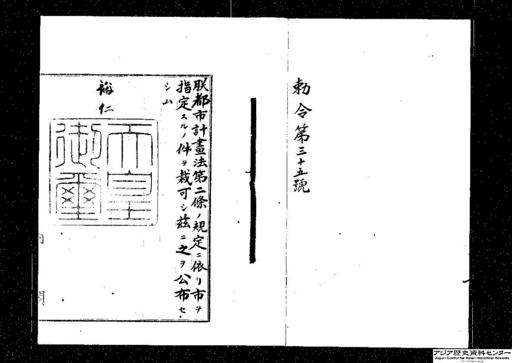 勅令第三十五號
朕都市計畫法第二條ノ規定ニ依リ市ヲ
指定スルノ件ヲ裁可シ茲ニ之ヲ公布セ
シム
裕仁
天皇
御璽
内
閣
アジア歴史資料センター
Japan Center for Asian Historical Records